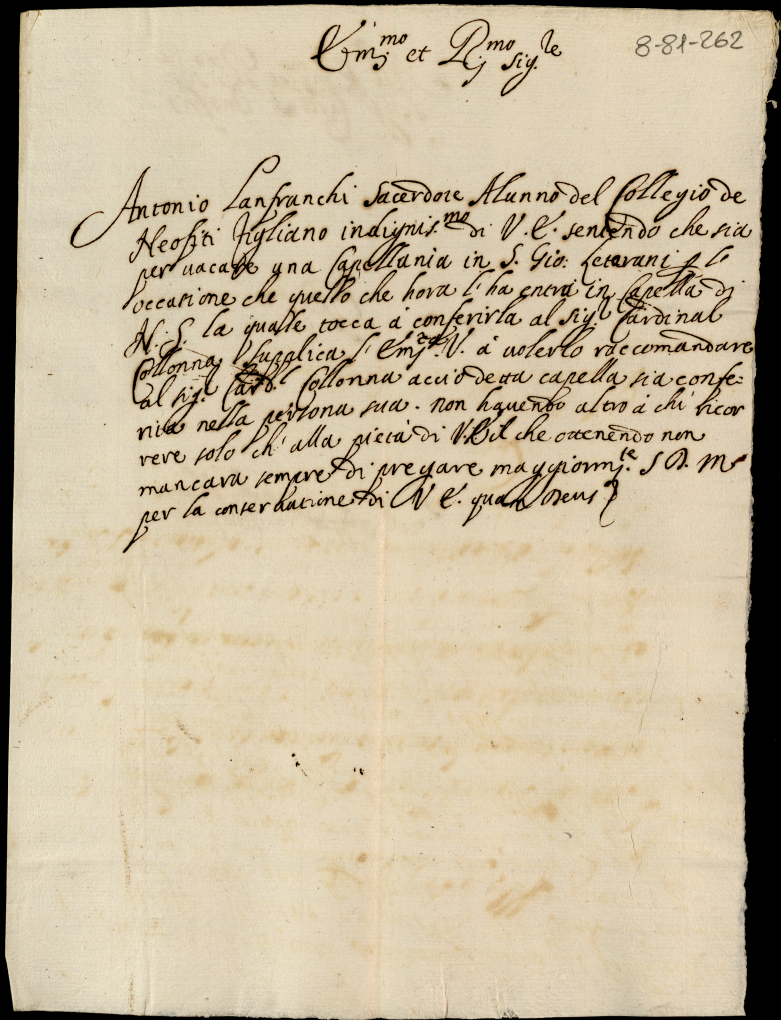 Em.mo et R.mo Sig.re
8-81-262
Antonio Lanfranchi Sacerdote Alunno del Collegio de
Neofiti figliano indignis.mo di V. E. sentendo che sia
per vacare una Capellania in S. Gio: Leterani p l'
occasione che quello che hora l'ha entra in Capella di
N. S. la qualle tocca á conferirla al sig.r Cardinal
Collonna, supplica l' Em.za V. á volerlo raccomandare
al sig.r Card.l Collonna acciò detta capella sia confe-
rita nella persona sua. non havendo altro á chi ricor
rere solo ch' alla pietà di V. E. il che ottenendo non
mancara sempre di pregare maggiorm.te S D. M.
per la conservatione di V E. quam Deus